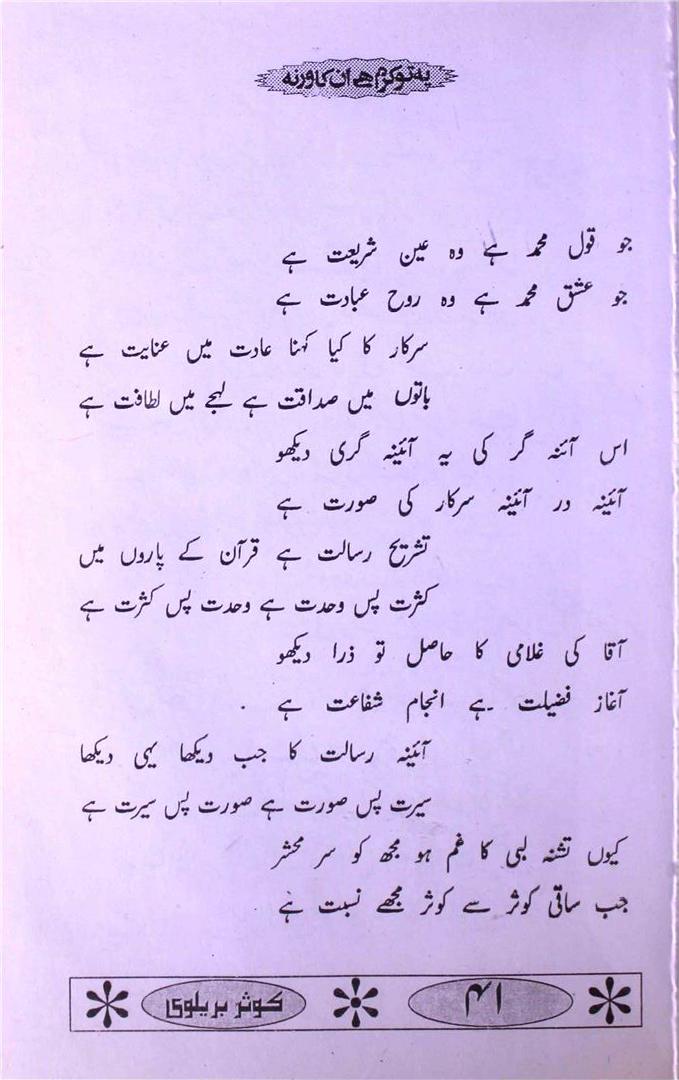 یہ تو کرم ہے ان کا ورنہ
جو قول محمدؐ ہے وہ عین شریعت ہے
جو عشق محمدؐ ہے وہ روح عبادت ہے
سرکار کا کیا کہنا عادت میں عنایت ہے
باتوں میں صداقت ہے لہجے میں لطافت ہے
اس آئنہ گر کی یہ آئینہ گری دیکھو
آئینہ در آئینہ سرکار کی صورت ہے
تشریح رسالت ہے قرآن کے پاروں میں
کثرت پس وحدت ہے وحدت پس کثرت ہے
آقا کی غلامی کا حاصل تو ذرا دیکھو
آغاز فضیلت ہے انجام شفاعت ہے
آئینہ رسالت کا جب دیکھا یہی دیکھا
سیرت پس صورت ہے صورت پس سیرت ہے
کیوں تشنہ لبی کا غم ہو مجھ کو سر محشر
جب ساقی کوثر سے کوثر مجھے نسبت ہے
۴۱
کوثر بریلوی